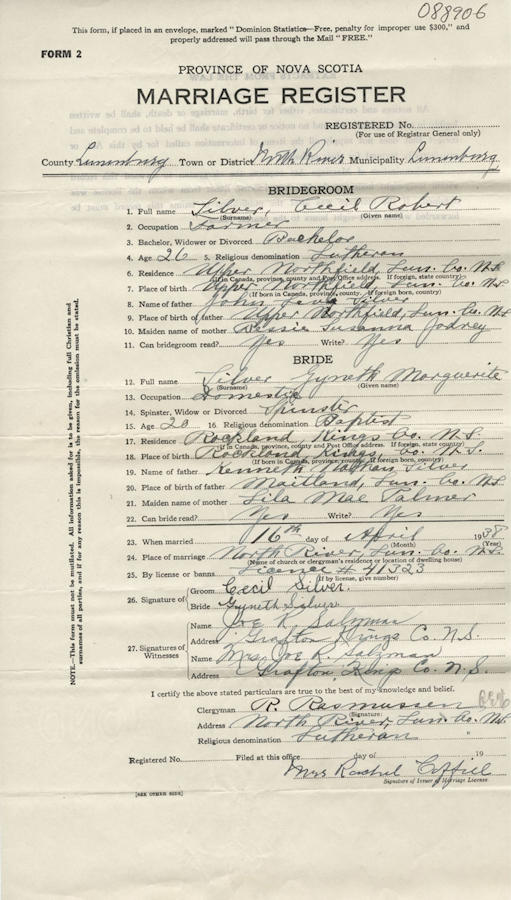 088906
This form, if placed in an envelope, marked "Dominion Statistics—Free, penalty for improper use $300," and
properly addressed will pass through the Mail "FREE."
FORM 2
PROVINCE OF NOVA SCOTIA
MARRIAGE REGISTER
REGISTERED No.
(For use of Registrar General only)
County Lunenburg Town or District North River Municipality Lunenburg
BRIDEGROOM
1. Full name Silver, Cecil Robert
(Surname) (Given name)
2. Occupation Farmer
3. Bachelor, Widower or Divorced Bachelor
4. Age 26 5. Religious denomination Lutheran
6. Residence Upper Northfield, Lun. Co. N.S.
(If in Canada, province, county and Post Office address. If foreign, state country)
7. Place of birth Upper Northfield, Lun. Co. N.S.
(If born in Canada, province, county. If foreign born, country)
8. Name of father John Silver
9. Place of birth of father Upper Northfield, Lun. Co. N.S.
10. Maiden name of mother Bessie Susanna Jodrey
11. Can bridegroom read? Yes Write? Yes
BRIDE
12. Full name Silver Gyneth Marguerite
(Surname) (Given name)
13. Occupation Domestic
14. Spinster, Widow or Divorced Spinster
15. Age 20 16. Religious denomination Baptist
17. Residence Rockland, Kings Co. N.S.
(If in Canada, province, county and Post Office address. If foreign, state country)
18. Place of birth Rockland, Kings, Co. N.S.
(If born in Canada, province, county. If foreign born, country)
19. Name of father Kenneth Nathan Silver
20. Place of birth of father Maitland, Lun. Co. N.S.
21. Maiden name of mother Lila Mae Palmer
22. Can bride read? Yes Write? Yes
23. When married 16th day of April 1938
(Month) (Year)
24. Place of marriage North River, Lun. Co. N.S.
(Name of church or clergyman's residence or location of dwelling house)
25. By license or banns License # 41323
(If by license, give number)
26. Signature of
Groom Cecil Silver.
Bride Gyneth Silver
27. Signatures of Witnesses
Name Joe R. Salzman
Address Grafton Kings Co N.S.
Name Mrs. Joe R. Salzman
Address Grafton, Kings Co. N.S.
I certify the above stated particulars are true to the best of my knowledge and belief.
Clergyman R. Rasmussen
(Signature)
Address North River, Lun. Co. N.S.
Religious denomination Lutheran "
Registered No. Filed at this office day of 19
Mrs Rachel Coffill
Signature of Issuer of Marriage License
[SEE OTHER SIDE]
NOTE.—This form must not be mutilated. All information asked for is to be given, including full Christian and
surnames of all parties, and if for any reason this is impossible, the reason for the omission must be stated.